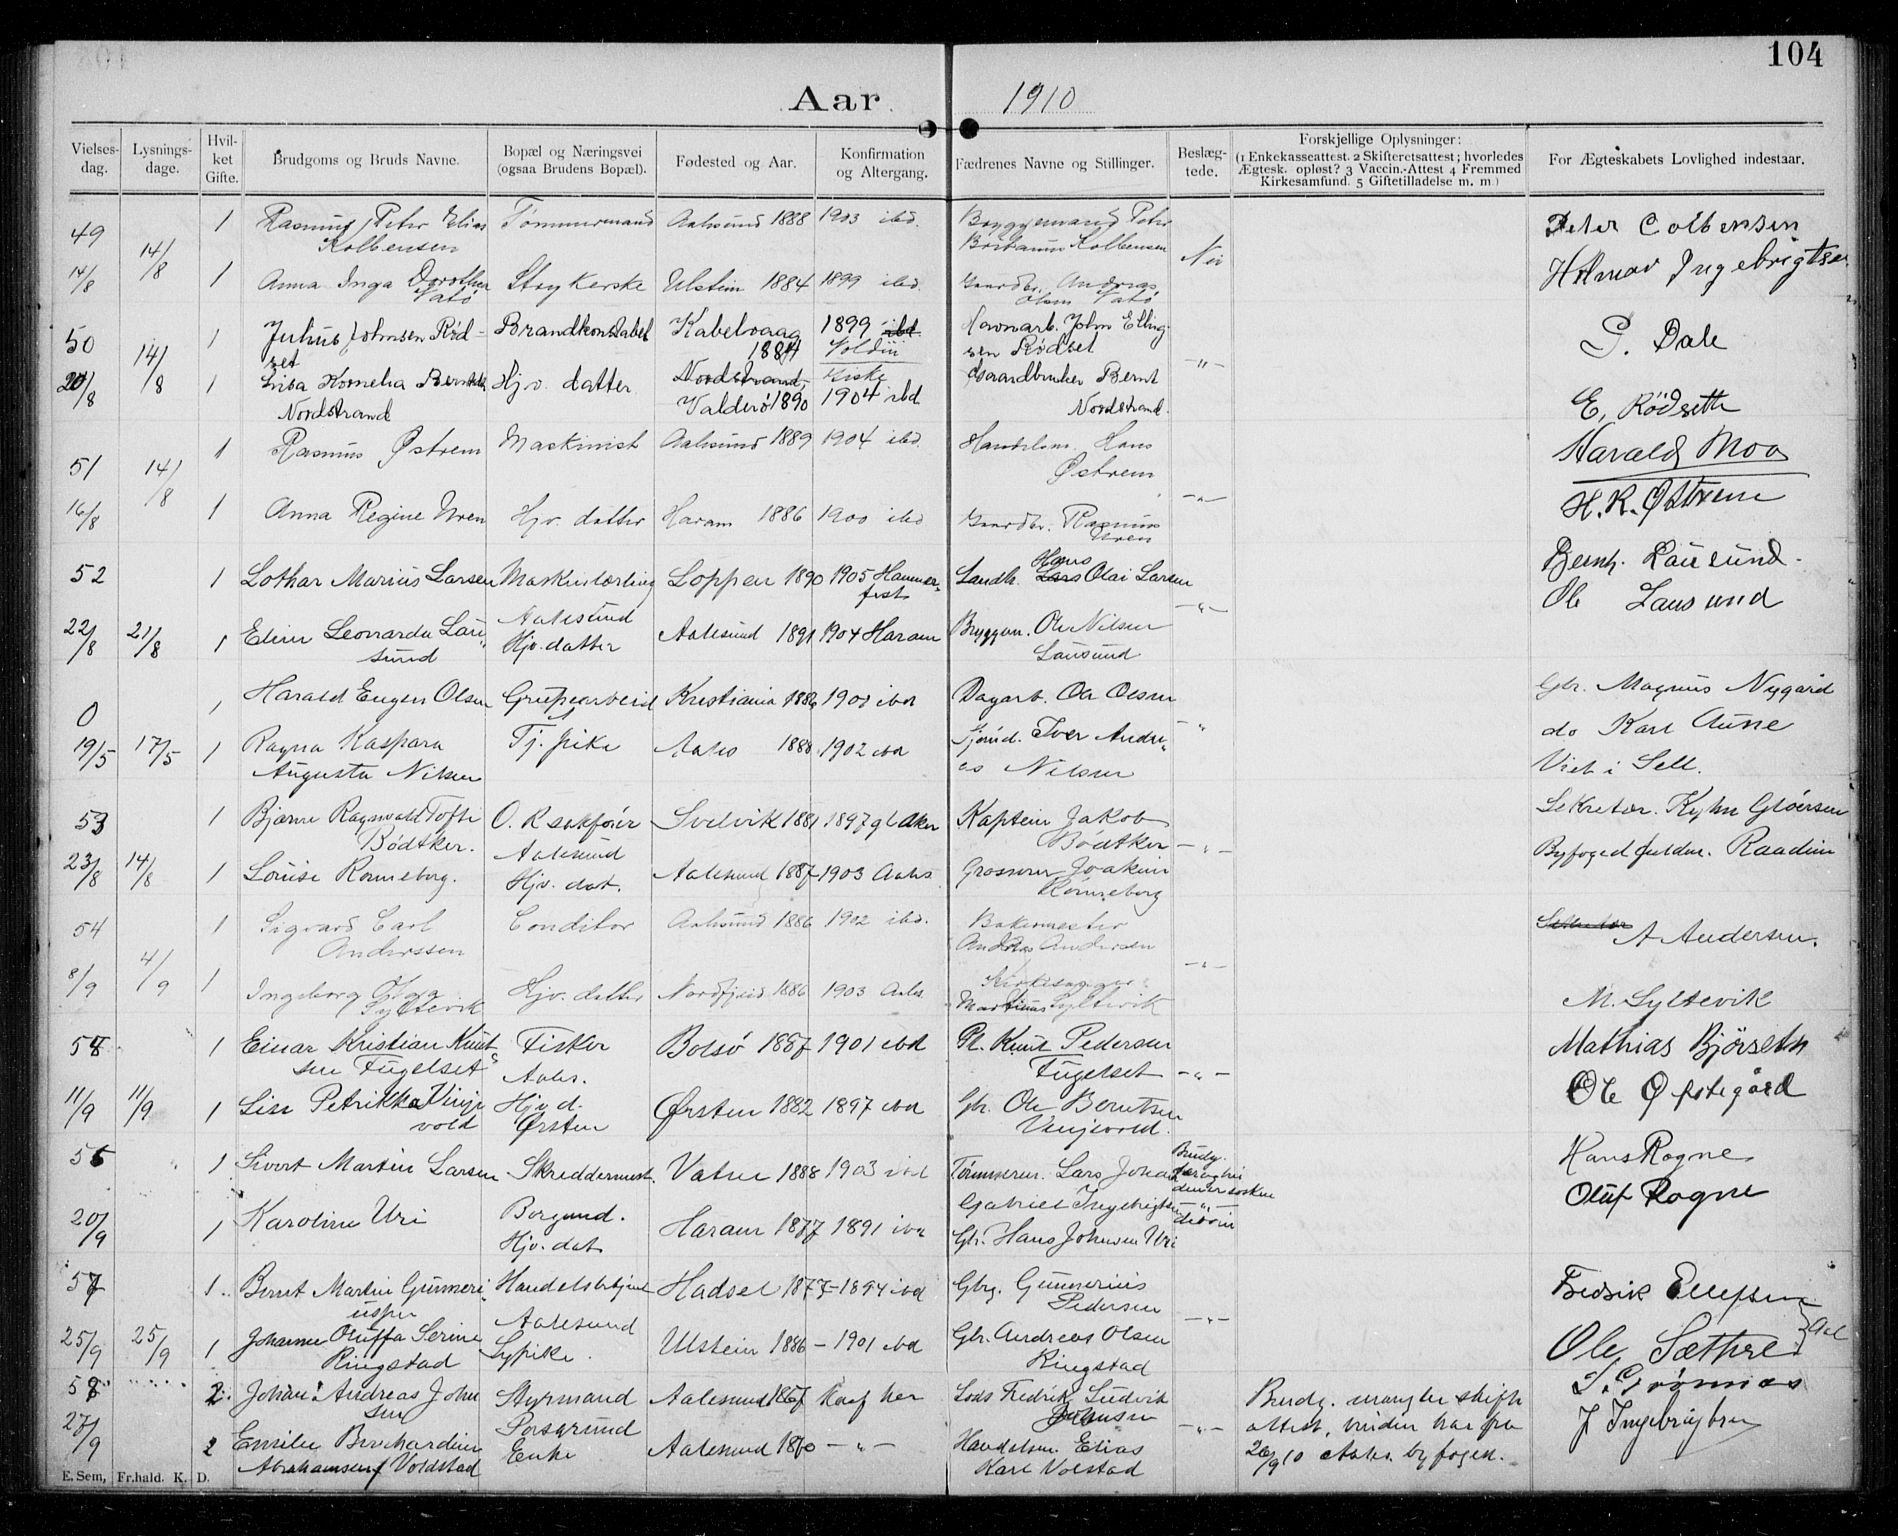 104
Aar 1910
Vielses-dag. Lysnings-dage. Hvil-ket Gifte. Brudgoms og Bruds Navne. Bopæl og Næringsvei (ogsaa Brudens Bopæl). Fødested og Aar. Konfirmation og Altergang. Fædrenes Navne og Stillinger. Beslæg-tede. Forskjellige Oplysninger: (1 Enkekasseattest. 2 Skifteretsattest; hvorledes Ægtesk. opløst? 3 Vaccin.-Attest 4 Fremmed Kirkesamfund. 5 Giftetilladelse m. m.) For Ægteskabets Lovlighed indestaar.
49 14/8 1 Rasmus Peter Elias Tømmermand Aalesund 1888 1903 ibd. Bryggemand Peter Peter Colbensen
Kolbensen Kolbensen Nei
14/8 1 Anna Inga Dorothea Strykerske Ulstein 1884 1899 ibd. Gaardbr. Andreas Hilmar Ingebrigtsen
Vatö Olsen Vatö
50 14/8 1 Julius Johnsen Rød- Brandkonstabel Kabelvaag 1899 ibd. Havnarb. John Elling- P. Dale
set 1884 Voldin sen Rødset -"-
20/8 1 Kornelia Berntda Hjv. datter Nordstrand, Giske Gaardbruker Bernt
Nordstrand Valderö 1890 1904 ibd Nordstrand. E. Rödsette
51 14/8 1 Rasmus Østrem Maskinist Aalesund 1889 1904 ibd. Handelsm. Hans Harald Moa
Østrem -"-
16/8 1 Anna Regine Uren Hjv. datter Haram 1886 1900 ibd Gaardbr. Rasmus H. K. Østrem
Uren
52 1 Lothar Marius Larsen Maskinlærling Loppen 1890 1905 Hammer- Landh. Hans Lars Olai Larsen Bernh. Lausund.
Aalesund fest -"- Ole Lausund
22/8 21/8 1 Eline Leonarda Lau- Hjv. datter Aalesund 1891 1904 Haram Bryggem. Ole Nilsen
sund Lausund
0 1 Harald Eugen Olsen Grupearbeid Kristiania 1886 1901 ibd Dagarb. Ole Olsen Gbr. Magnus Nygård
-"- do Karl Aune
19/5 17/5 1 Ragna Kaspara Tj. pike Aales 1888 1902 ibd Iver Andre-
Augusta Nilsen as Nilsen Viet i Sell.
53 1 Bjarne Ragnvald Tofte O. R sakfører Svelvik 1881 1897 gl Aker Kaptein Jakob Sekretær. Kyhn Gløersen
Bödtker. Aalesund Bödtker -"-
23/8 14/8 1 Louise Rønneberg. Hjv. dat. Aalesund 1887 1903 Aales. Grosserer Joakim Byfoged Raadim
Rønneberg
54 1 Sigvard Carl Conditor Aalesund 1886 1902 ibd. Bakermester Sekretær A Andersen.
Anderssen Andreas Andersen
8/9 4/9 1 Ingeborg Olga Hjv. datter Nordfjeid 1886 1903 Aales Kirkesanger -"-
Syltevik Martinus Syltevik M. Syltevik
55 1 Einar Kristian Knut- Fisker Bolsö 1887 1901 ibd Pl. Knut Pedersen Mathias Bjørseth
sen Fugelset Aales. Fugelset -"-
11/9 11/9 1 Lise Petrikka Vinje- Hjv d. Ørsten 1882 1897 ibd Gbr. Ole Berntsen Ole Øfstegård
vold Ørsten Vinjevold.
56 1 Sivert Martin Larsen Skreddermest. Vatne 1888 1903 ibd Tømmerm. Lars Johan Brudg. Hans Rogne
Gabriel Ingebrigtsen Oluf Rogne
20/9 1 Karoline Uri Borgund. Hjv. dat Haram 1877 1891 ibd Gbr. Hans Johnsen Uri
57 1 Bernt Martin Gunneri- Handelsbetjent Hadsel 1877 - 1894 ibd Gbrg. Gunnerius Fredrik Ellefsen
ussen Aalesund Pedersen -"-
25/9 25/9 1 Johanne Oluffa Serine Sypike. Ulstein 1886 - 1901 ibd Gbr. Andreas Olsen Ole Sæthre } Aal
Ringstad Ringstad
58 2 Johan Andreas John- Styrmand Aalesund 1867 Konf her Lods Fredrik Ludvik Brudg. mangler skifte S. Grømnæs
sen Porsgrund Johnsen -"- attest, bruden har fra
27/9 2 Emilie Berhardine Enke Aalesund 1860 -"- Handelsm. Elias 26/9 10 Aales. byfoged. J Ingebrigtsen
Abrahamsen f Voldstad Karl Volstad
E. Sem, Fr.hald. K. D.